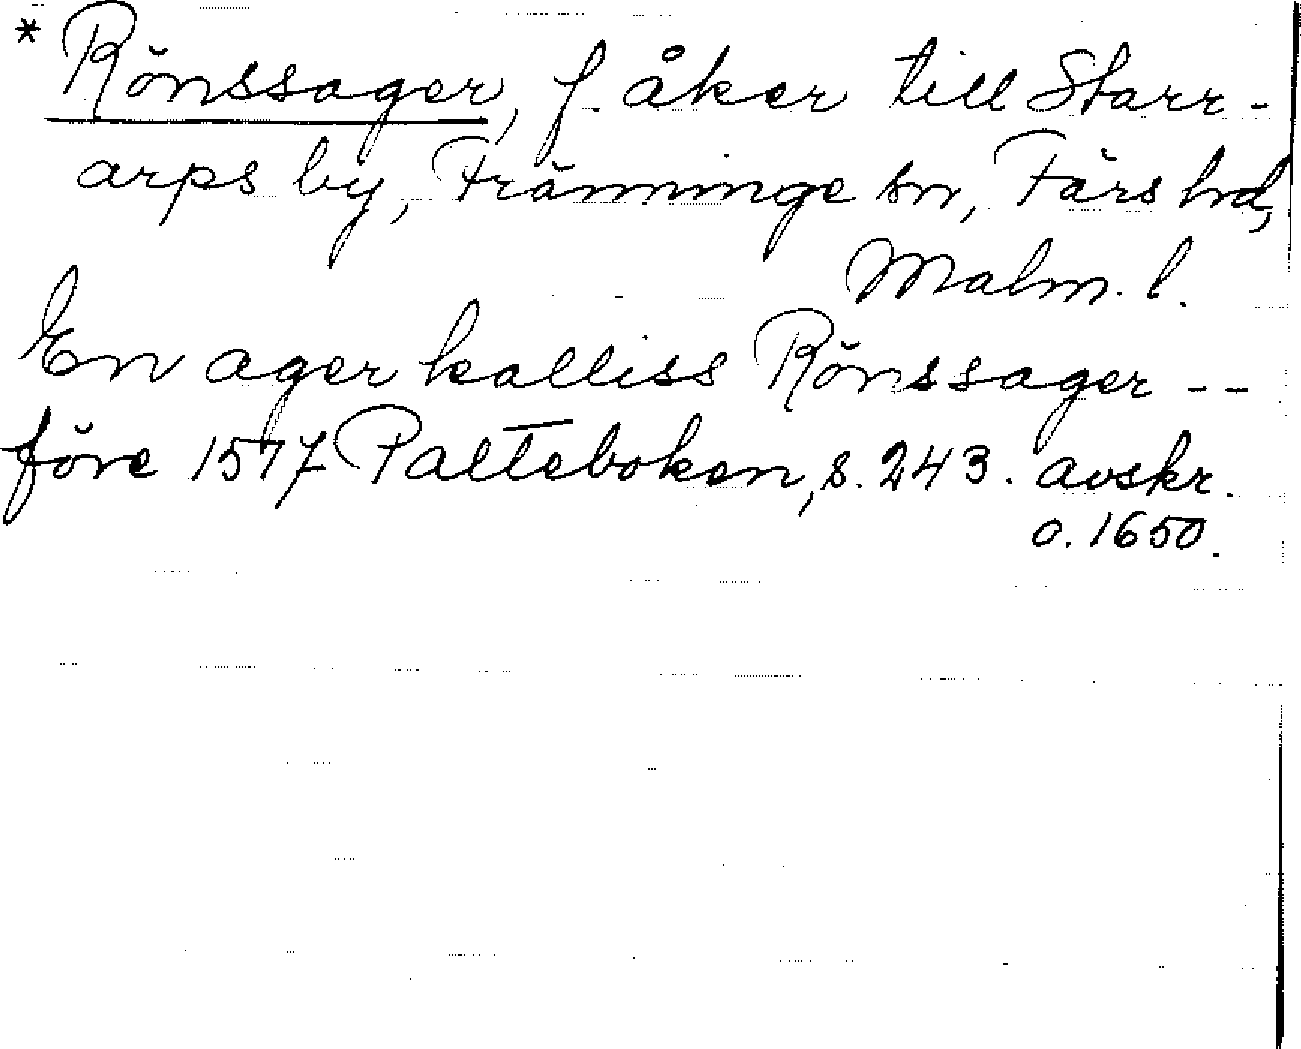 * Rönssager, f. åker till Starr-
arps by, Fränninge sn, Färs hd,
Malm. l.
En ager kalliss Rönssager --
före 1577 Palteboken, s. 243. avskr.
o. 1650.